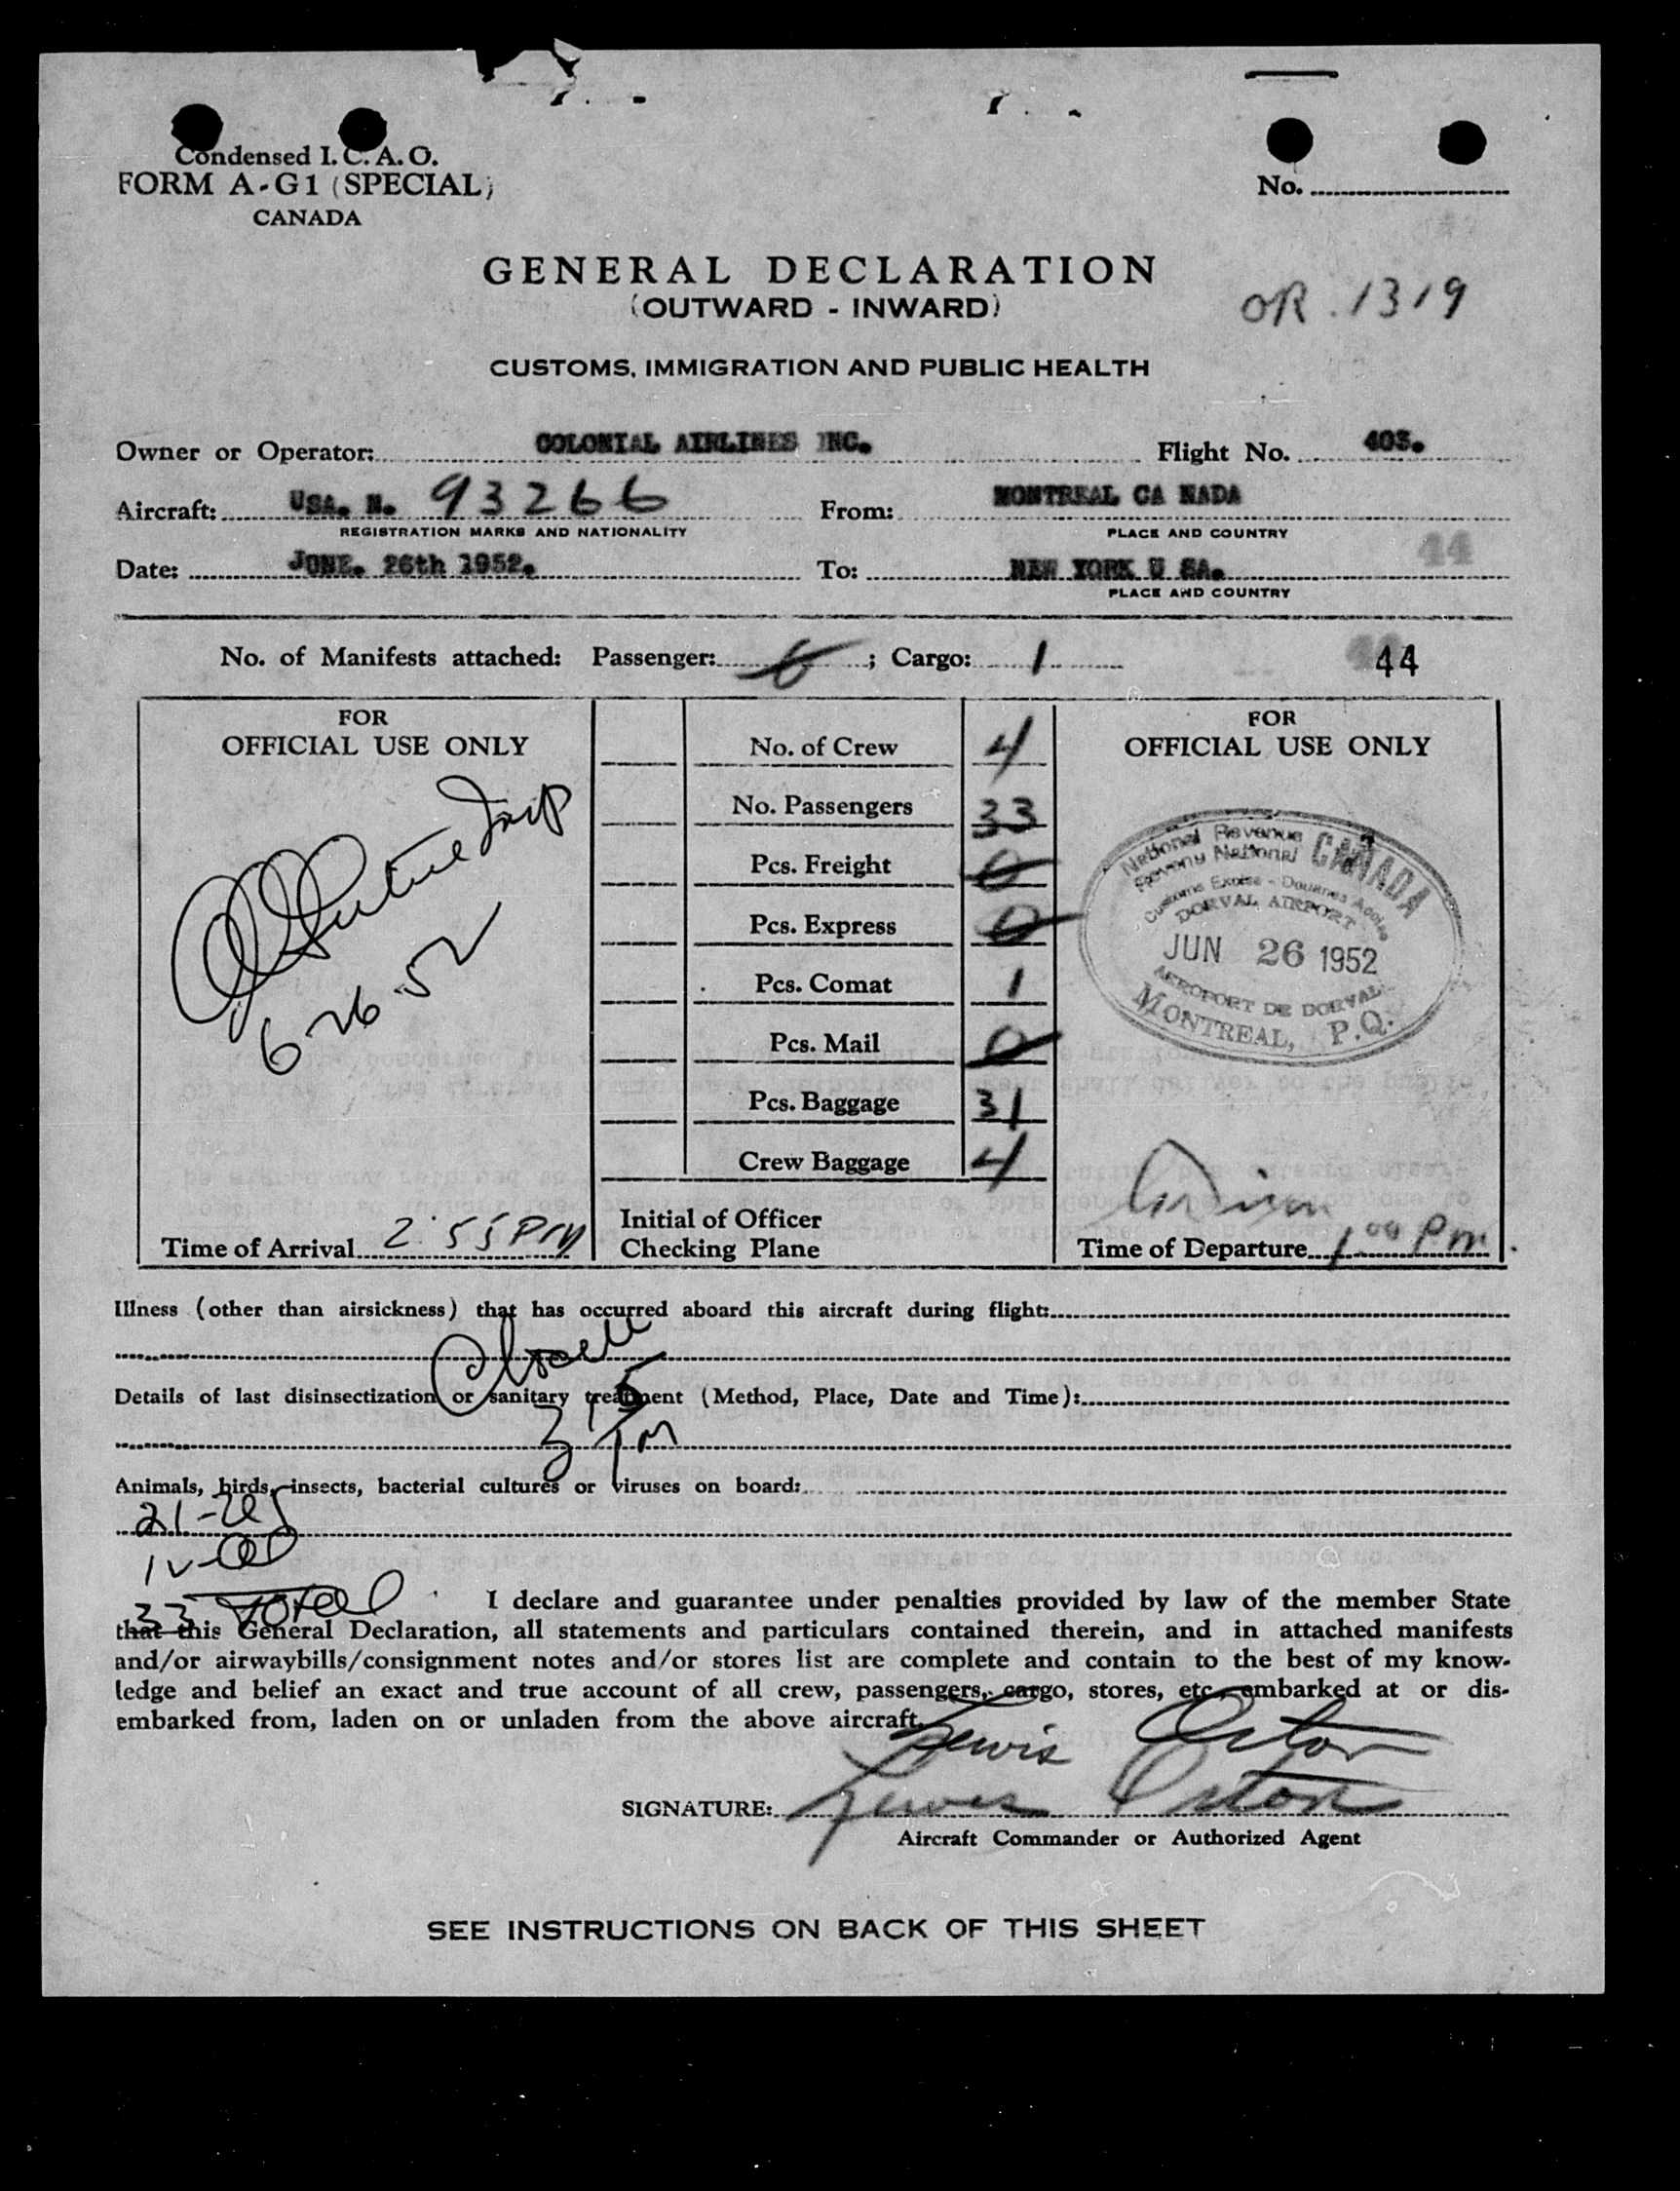 Condensed I. C. A. O.
FORM A-G1 (SPECIAL)
CANADA
No.
GENERAL DECLARATION
(OUTWARD - INWARD)
OR. 1319
CUSTOMS, IMMIGRATION AND PUBLIC HEALTH
Owner or Operator: COLONIAL AIRLINES INC. Flight No. 403.
Aircraft: USA. N. 93266 From: MONTREAL CA NADA
REGISTRATION MARKS AND NATIONALITY PLACE AND COUNTRY
44
Date: JUNE. 26th 1952. To: NEW YORK U SA.
PLACE AND COUNTRY
No. of Manifests attached: Passenger: 6 ; Cargo: 1 44
FOR
OFFICIAL USE ONLY
6-26-52
Time of Arrival 2:55 PM
No. of Crew 4
No. Passengers 33
Pcs. Freight 0
Pcs. Express 0
Pcs. Comat 1
Pcs. Mail 0
Pcs. Baggage 31
Crew Baggage 4
Initial of Officer
Checking Plane
FOR
OFFICIAL USE ONLY
National Revenue CANADA
Revenu National
Customs Excise - Douanes Accise
DORVAL AIRPORT
JUN 26 1952
AEROPORT DE DORVAL
MONTREAL, P.Q.
Time of Departure 1 00 Pm.
Illness (other than airsickness) that has occurred aboard this aircraft during flight:
Details of last disinsectization or sanitary treatment (Method, Place, Date and Time):
3 15 PM
Animals, birds, insects, bacterial cultures or viruses on board:
21-US
12-
33 Total
I declare and guarantee under penalties provided by law of the member State
that this General Declaration, all statements and particulars contained therein, and in attached manifests
and/or airwaybills/consignment notes and/or stores list are complete and contain to the best of my know-
ledge and belief an exact and true account of all crew, passengers, cargo, stores, etc. embarked at or dis-
embarked from, laden on or unladen from the above aircraft.
Lewis Orton
SIGNATURE: Lewis Orton
Aircraft Commander or Authorized Agent
SEE INSTRUCTIONS ON BACK OF THIS SHEET